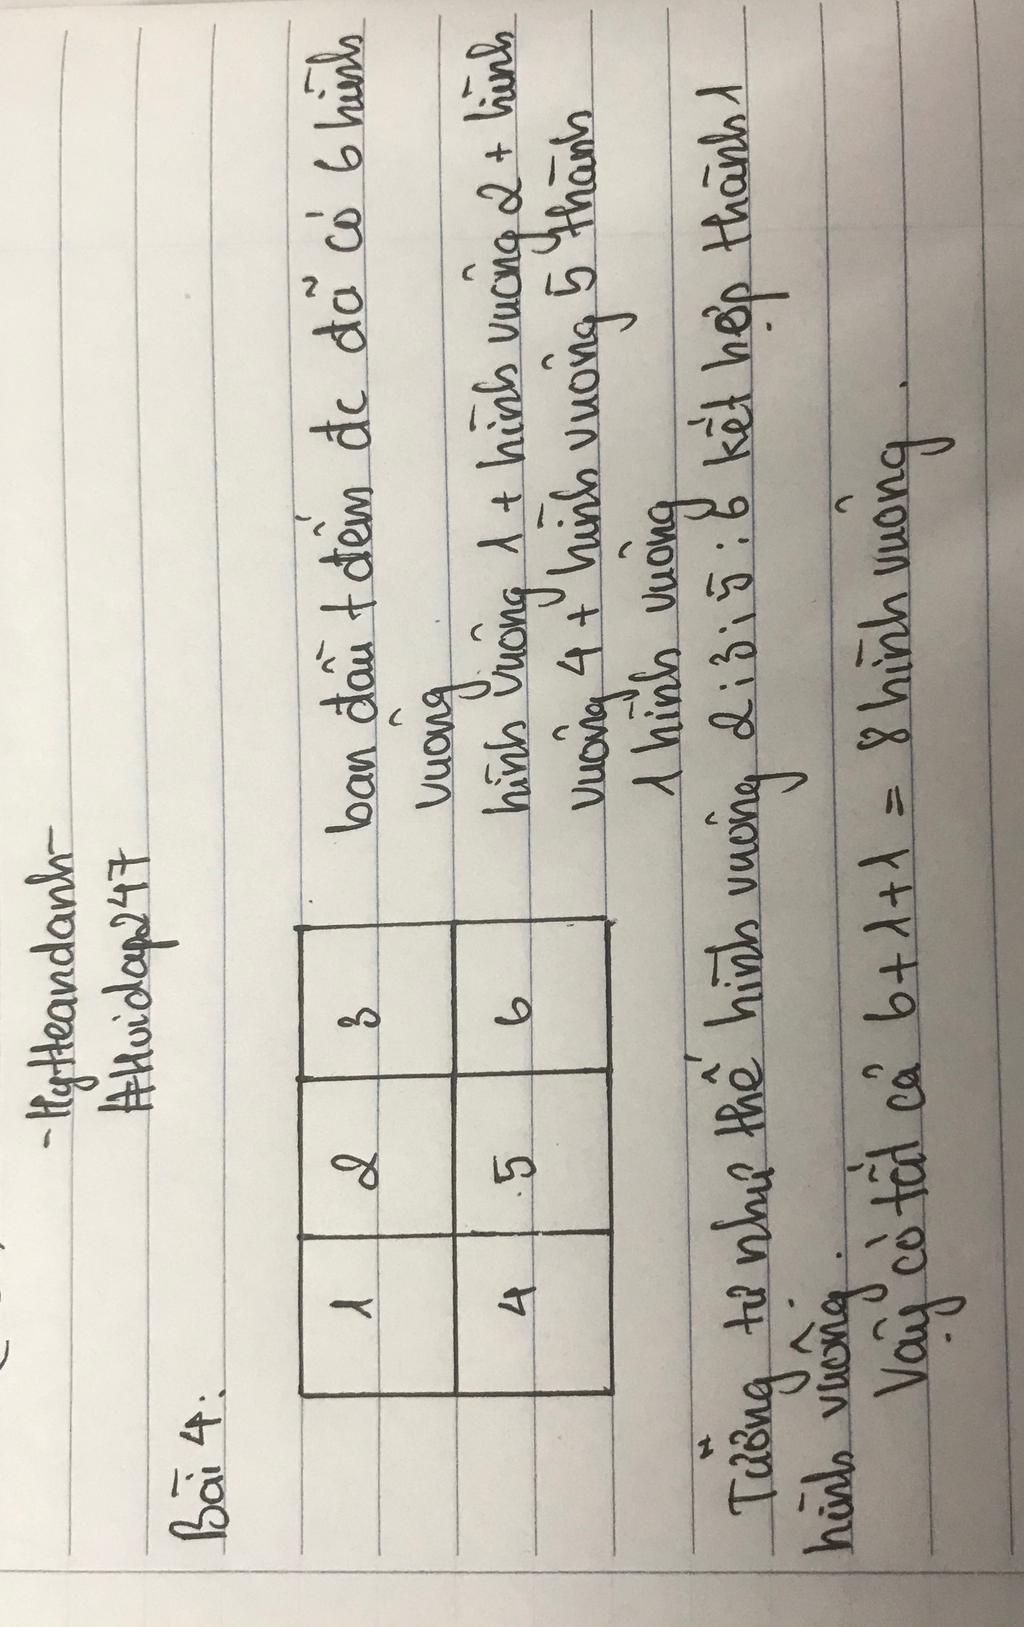 - Hytteandanh -
#Hoidap247
Bài 4:
1 2 3
4 5 6
ban đầu t đếm đc đã có 6 hình
vuông
hình vuông 1 + hình vuông 2 + hình
vuông 4 + hình vuông 5 thành
1 hình vuông
Tương tự như thế hình vuông 2; 3; 5; 6 kết hợp thành 1
hình vuông.
Vậy có tất cả 6 + 1 + 1 = 8 hình vuông.